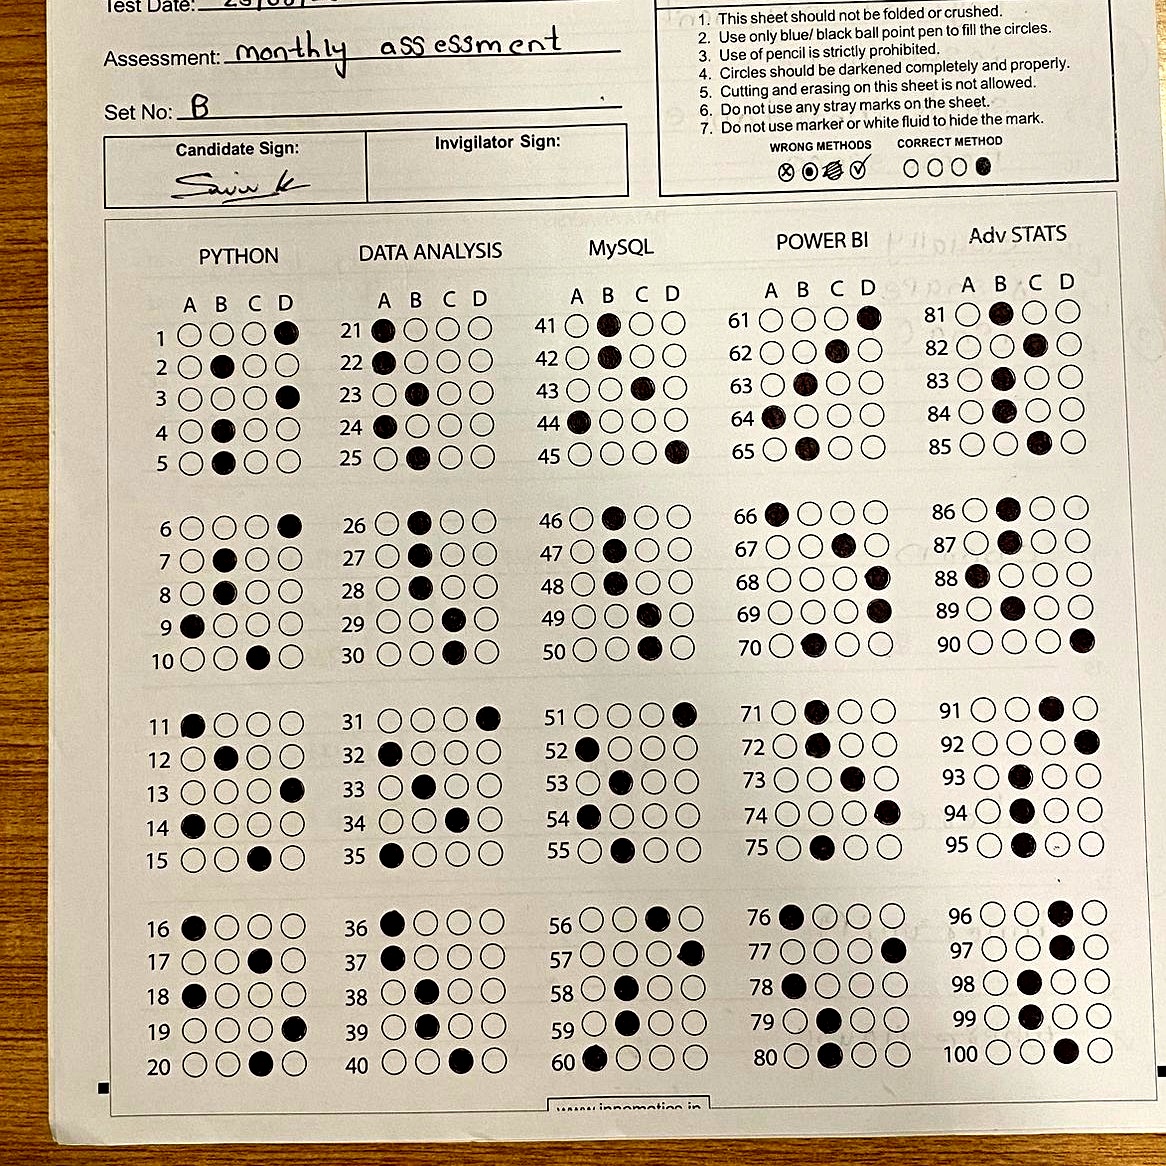 Test Date:
Assessment: monthly assessment
Set No: B
Candidate Sign:
Invigilator Sign:
1. This sheet should not be folded or crushed.
2. Use only blue/ black ball point pen to fill the circles.
3. Use of pencil is strictly prohibited.
4. Circles should be darkened completely and properly.
5. Cutting and erasing on this sheet is not allowed.
6. Do not use any stray marks on the sheet.
7. Do not use marker or white fluid to hide the mark.
WRONG METHODS CORRECT METHOD
PYTHON
A B C D
1
2
3
4
5
6
7
8
9
10
11
12
13
14
15
16
17
18
19
20
DATA ANALYSIS
A B C D
21
22
23
24
25
26
27
28
29
30
31
32
33
34
35
36
37
38
39
40
MySQL
A B C D
41
42
43
44
45
46
47
48
49
50
51
52
53
54
55
56
57
58
59
60
POWER BI
A B C D
61
62
63
64
65
66
67
68
69
70
71
72
73
74
75
76
77
78
79
80
Adv STATS
A B C D
81
82
83
84
85
86
87
88
89
90
91
92
93
94
95
96
97
98
99
100